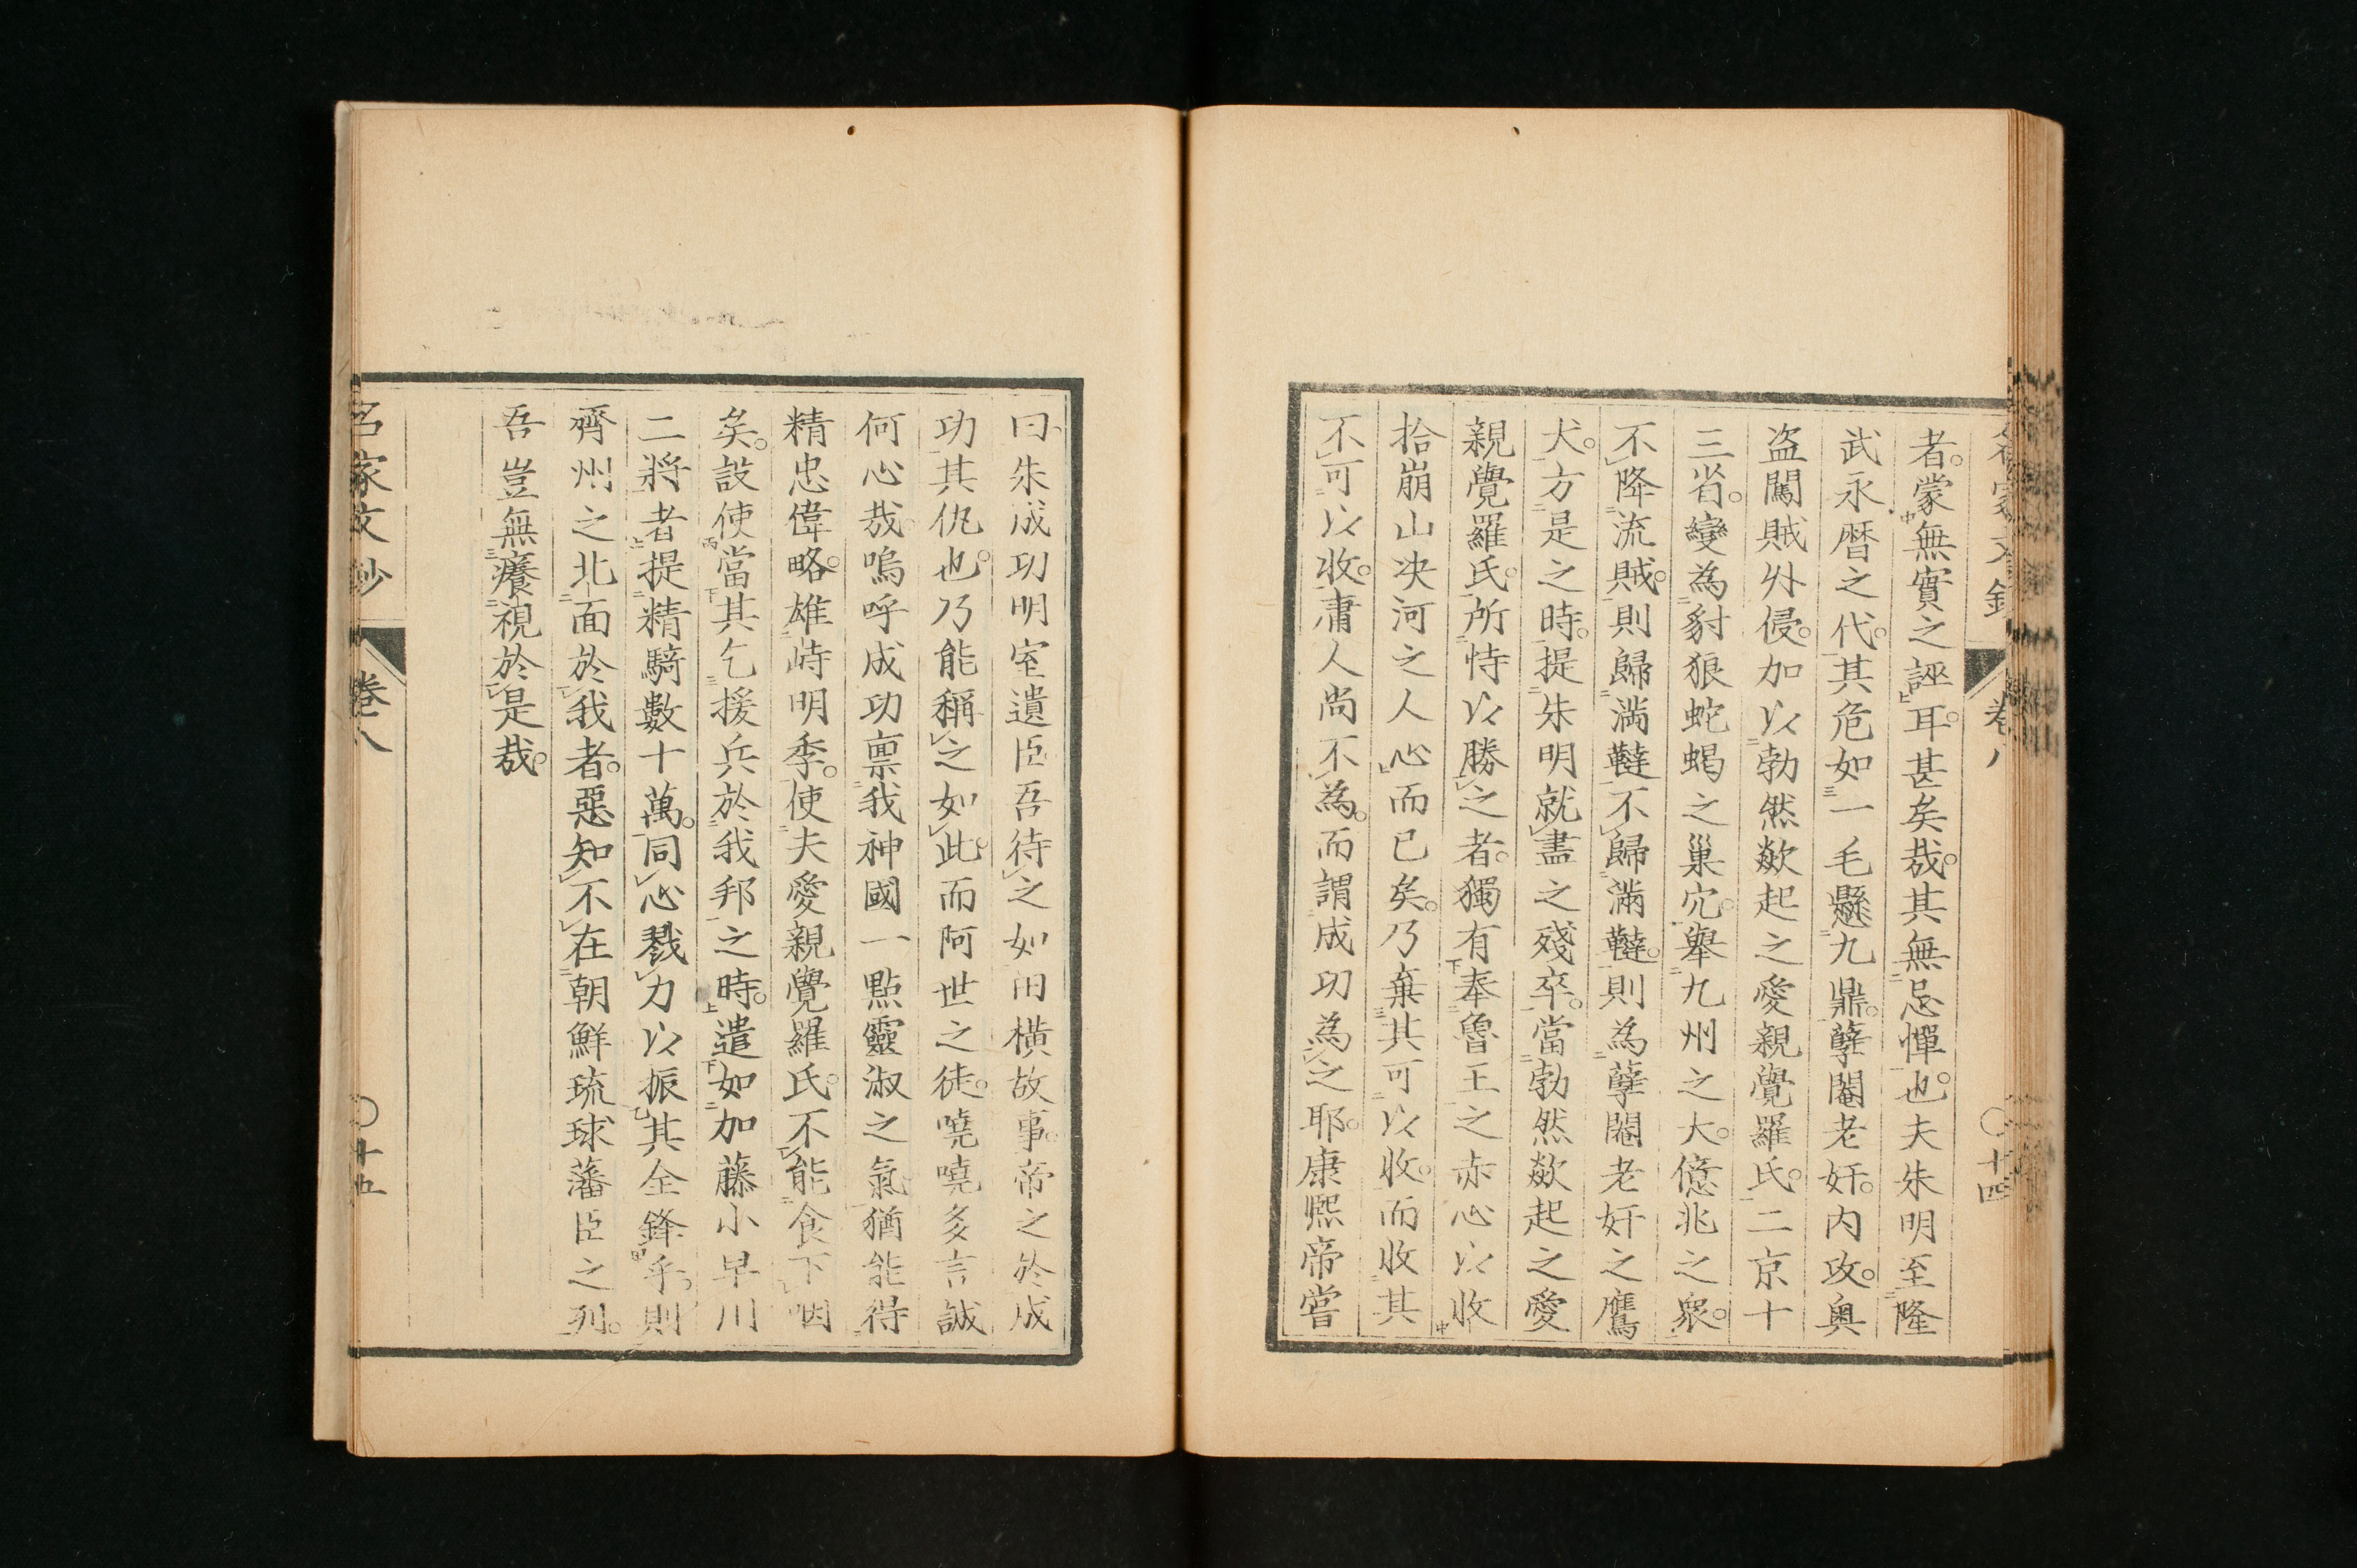 者。蒙無實之誣耳。甚矣哉。其無忌憚也。夫朱明至隆
武永暦之代。其危如一毛懸九鼎。孽閹老奸。内攻。奥
盗闖賊外侵。加以勃然欻起之愛親覺羅氏。二京十
三省。變為豺狼蛇蝎之巢穴。舉九州之大。億兆之衆。
不降流賊。則歸満韃不歸满韃。則為孽閹老奸之鷹
犬。方是之時。提朱明就盡之殘卒。當勃然欻起之愛
親覺羅氏。所恃以勝之者。獨有奉魯王之赤心以收
拾崩山决河之人心而已矣。乃棄其可以收。而收其
不可以收。庸人尚不為。而謂成功為之耶。康熙帝嘗
卷八
〇十四
曰朱成功明室遺臣吾待之如田横故事。帝之於成
功其仇也。乃能稱之如此。而阿世之徒。嘵嘵多言誠
何心哉。嗚呼成功禀我神國一點靈淑之氣猶能得
精忠偉略。雄峙明季。使夫愛親覺羅氏。不能食下咽
矣。設使當其乞援兵於我邦之時。遣如加藤小早川
二將者提精騎數十萬。同心戮力以振其全鋒乎。則
齊州之北面於我者。惡知不在朝鮮琉球藩臣之列。
吾豈無癢視於是哉。
名家文鈔
卷八
〇十五